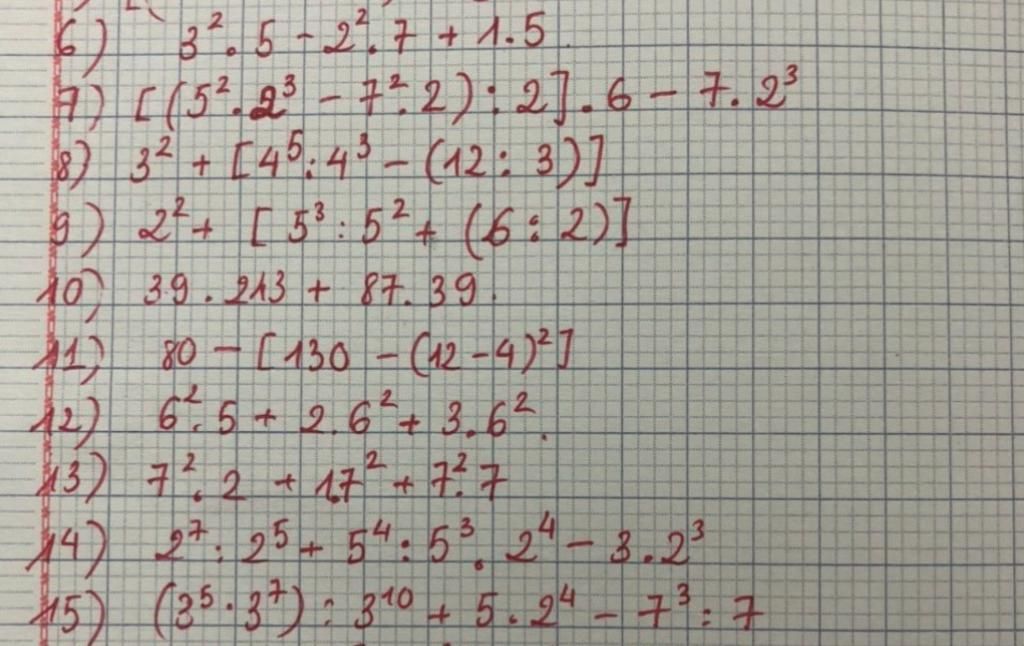 6) 3².5 - 2².7 + 1.5
7) [(5².2³ - 7².2) : 2].6 - 7.2³
8) 3² + [4⁵:4³ - (12 : 3)]
9) 2² + [5³:5² + (6 : 2)]
10) 39.213 + 87.39.
11) 80 - [130 - (12-4)²]
12) 6².5 + 2.6² + 3.6².
13) 7².2 + 1.7² + 7².7
14) 2⁷:2⁵ + 5⁴:5³.2⁴ - 3.2³
15) (3⁵.3⁷) : 3¹⁰ + 5.2⁴ - 7³:7